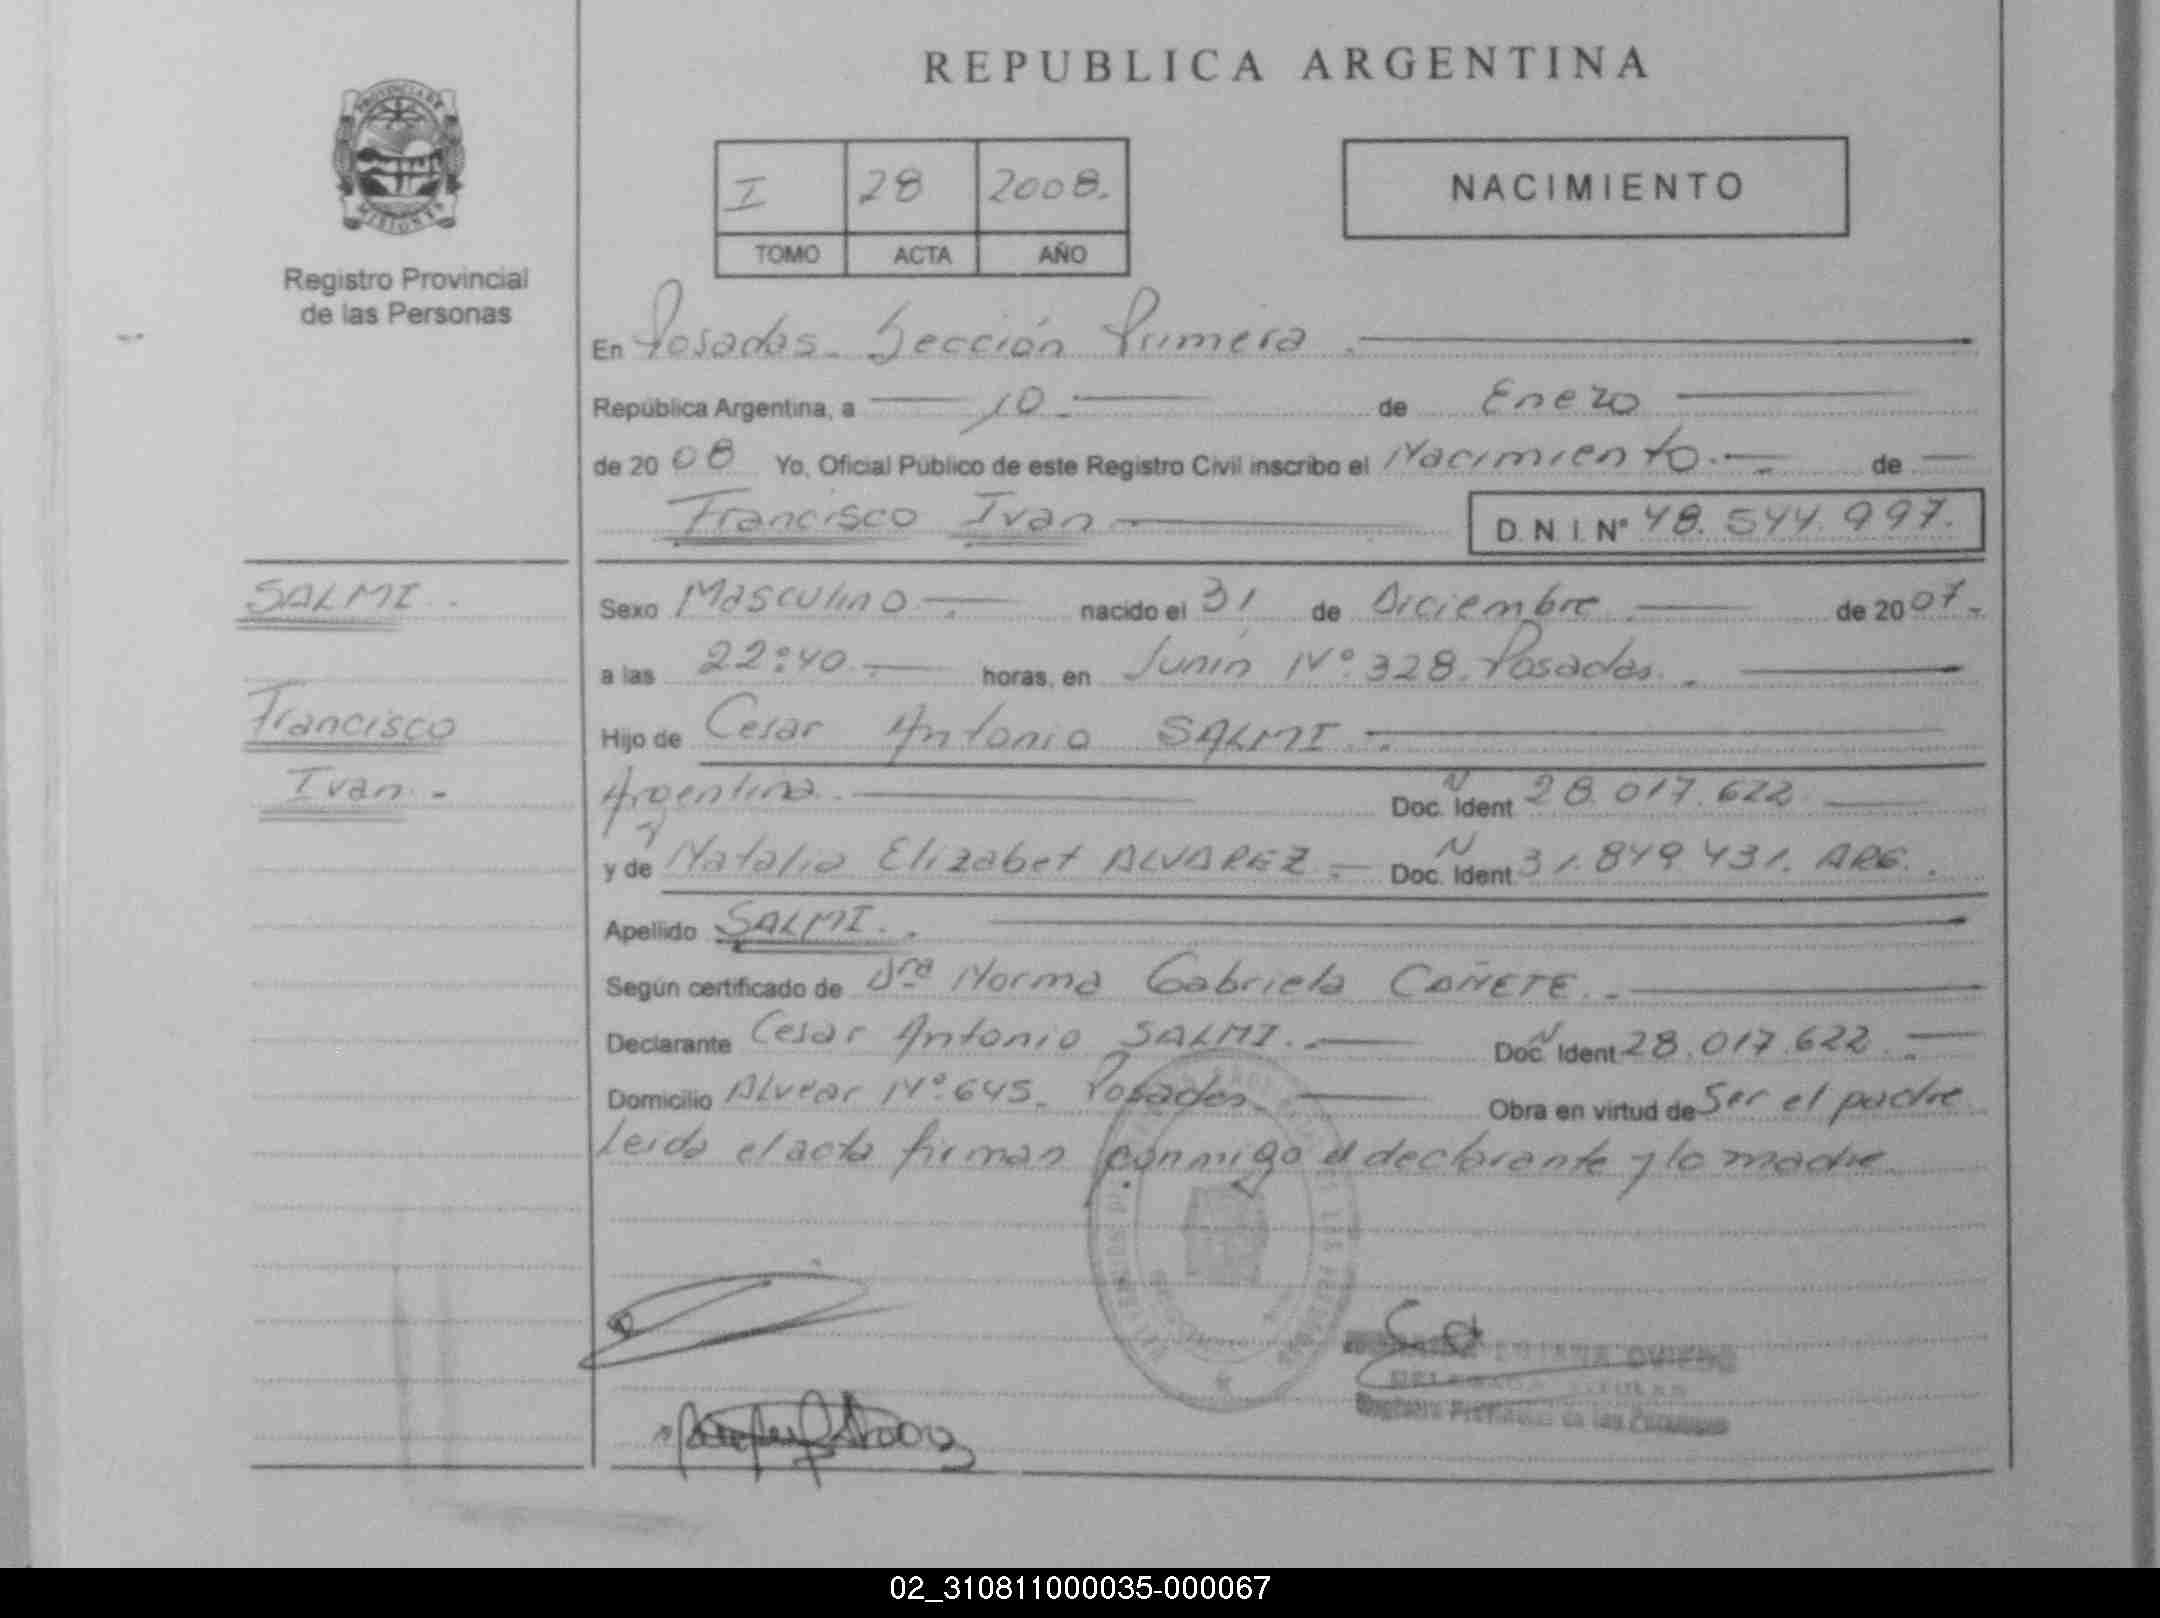 REPUBLICA ARGENTINA
PROVINCIA DE
MISIONES
Registro Provincial
de las Personas
I 28 2008.
TOMO ACTA AÑO
NACIMIENTO
En Posadas. Sección Primera.
República Argentina, a 10 de Enero
de 2008 Yo, Oficial Público de este Registro Civil inscribo el Nacimiento. de
Francisco Ivan D.N.I. Nº 48.544.997.
SALMI.
Francisco
Ivan.-
Sexo Masculino nacido el 31 de Diciembre de 2007.
a las 22:40 horas, en Junín Nº 328. Posadas.
Hijo de Cesar Antonio SALMI.
Argentina. Doc. Ident N 28.017.622
y de Natalia Elizabet ALVAREZ. Doc. Ident N 31.849.431. ARG.
Apellido SALMI.
Según certificado de Dra Norma Gabriela CAÑETE.
Declarante Cesar Antonio SALMI. Doc. Ident N 28.017.622
Domicilio Alvear Nº 645. Posadas. Obra en virtud de Ser el padre
Leida el acta firman conmigo el declarante y la madre
OVIEDO
Registro Provincial de las Personas
02_310811000035-000067